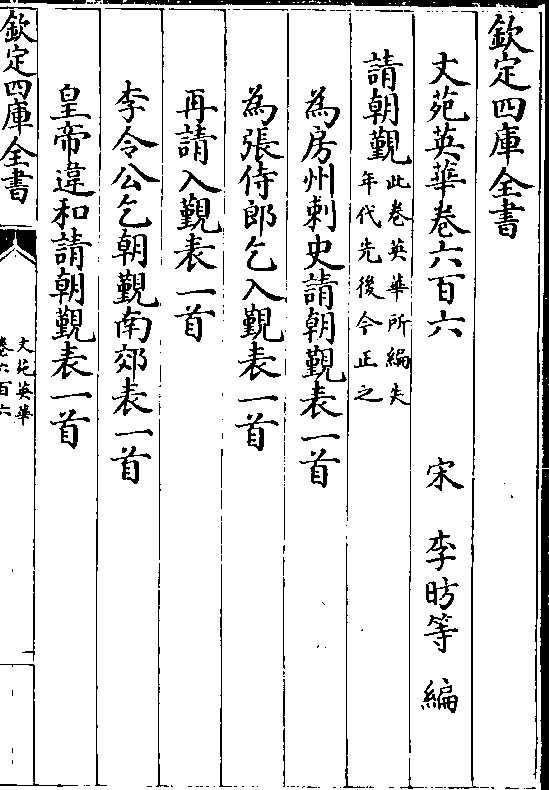 欽定四庫全書
文苑英華卷六百六　宋　李昉等　編
請朝覲此卷英華所編失
年代先後今正之
為房州刺史請朝覲表一首
為張侍郎乞入覲表一首
再請入覲表一首
李令公乞朝覲南郊表一首
皇帝違和請朝覲表一首
欽定四庫全書
文苑英華
卷六百六